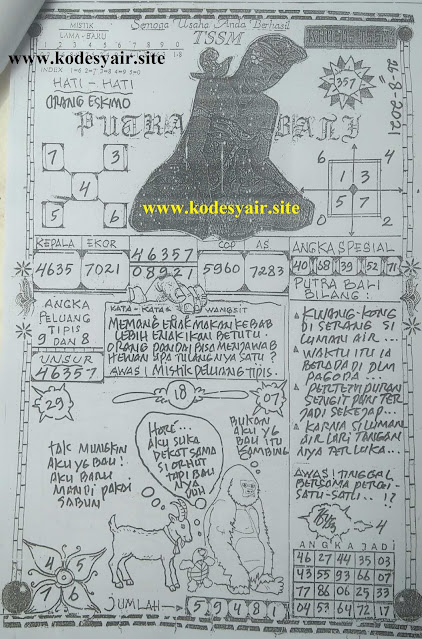 Semoga Usaha Anda Berhasil
TSSM
MISTIK
LAMA - BARU
0 1 2 3 4 5 6 7 8 9
www.kodesyair.site
INDEX 1=6 2=7 3=8 4=9 5=0
HATI - HATI
ORANG ESKIMO
PUTRA BALI
357
26-8-2021
7 3
4
5 6
6 4
1 3
5 7
0 2
www.kodesyair.site
KEPALA EKOR
4635 7021
46357
08921
COP AS
5960 7283
ANGKA SPESIAL
40 68 39 52 71
ANGKA
PELUANG
TIPIS
9 DAN 8
UNSUR
46357
KATA - KATA WANGSIT
MEMANG ENAK MAKAN KEBAB
LEBIH ENAK IKAN BETUTU.
ORANG PANDAI BISA MENJAWAB
HEWAN APA TULANGNYA SATU?
AWAS! MISTIK PELUANG TIPIS.
PUTRA BALI
BILANG:
KUCING-KONG
DI SERANG SI
LUMAN AIR...
WAKTU ITU IA
BERADA DI DLM
PAGODA...
PERTEMPURAN
SENGIT PUN TER
JADI SEKEJAP...
KARNA SILUMAN
AIR LARI TANGAN
NYA TERLUKA...
AWAS! TINGGAL
BERSAMA PERGI
SATU-SATU..!?
29
18
07
TAK MUNGKIN
AKU YG BAU!
AKU BARU
MANDI PAKAI
SABUN
HORE...
AKU SUKA
DEKAT SAMA
SI ORHUT
TAPI BAU
NYA
UUH
BUKAN
AKU YG
BAU ITU
KAMBING
4
4 5
7 6
JUMLAH
59481
ANGKA JADI
46 27 44 35 03
43 55 93 66 07
77 86 06 25 33
04 53 64 72 17